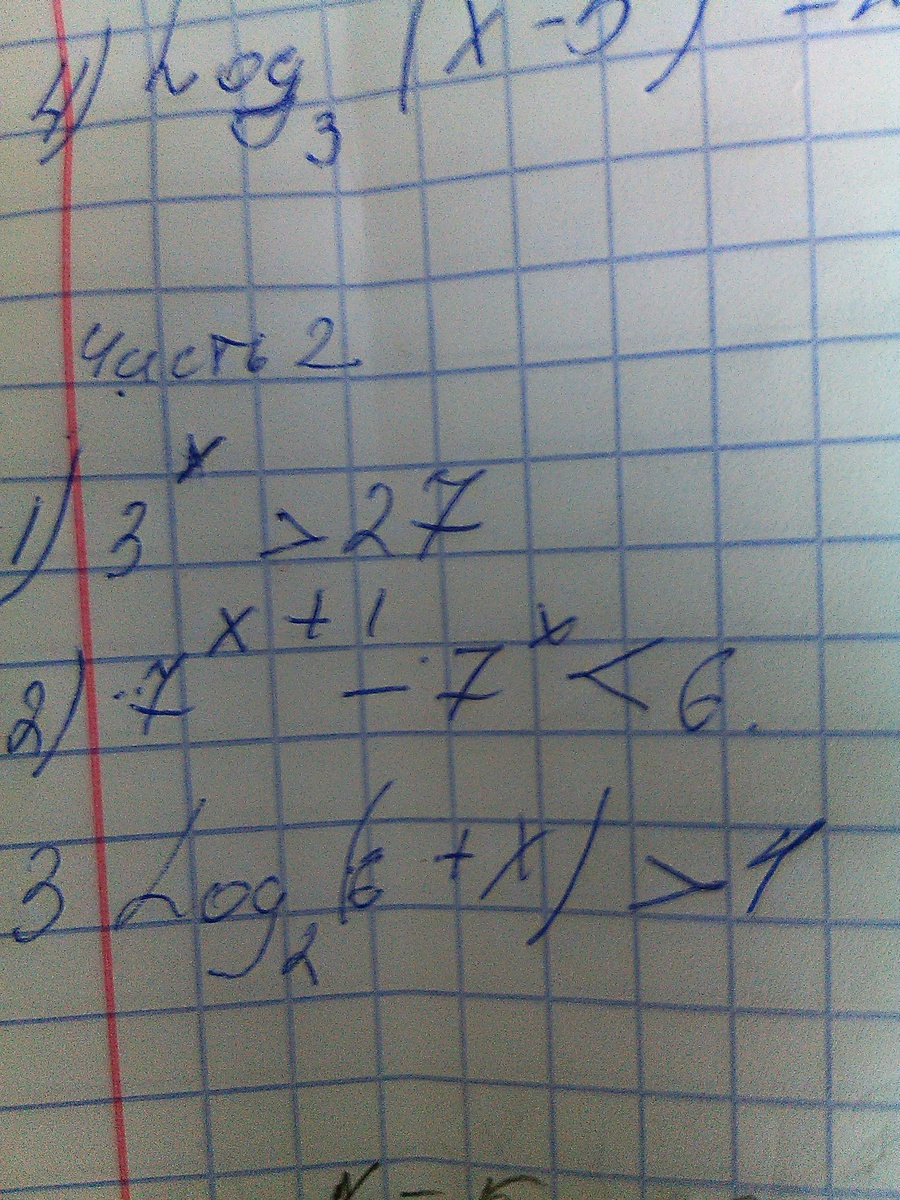 4) Log₃ (x-5)
Часть 2
1) 3ˣ > 27
2) 7ˣ⁺¹ - 7ˣ < 6.
3 Log₂ (6 + x) > 4